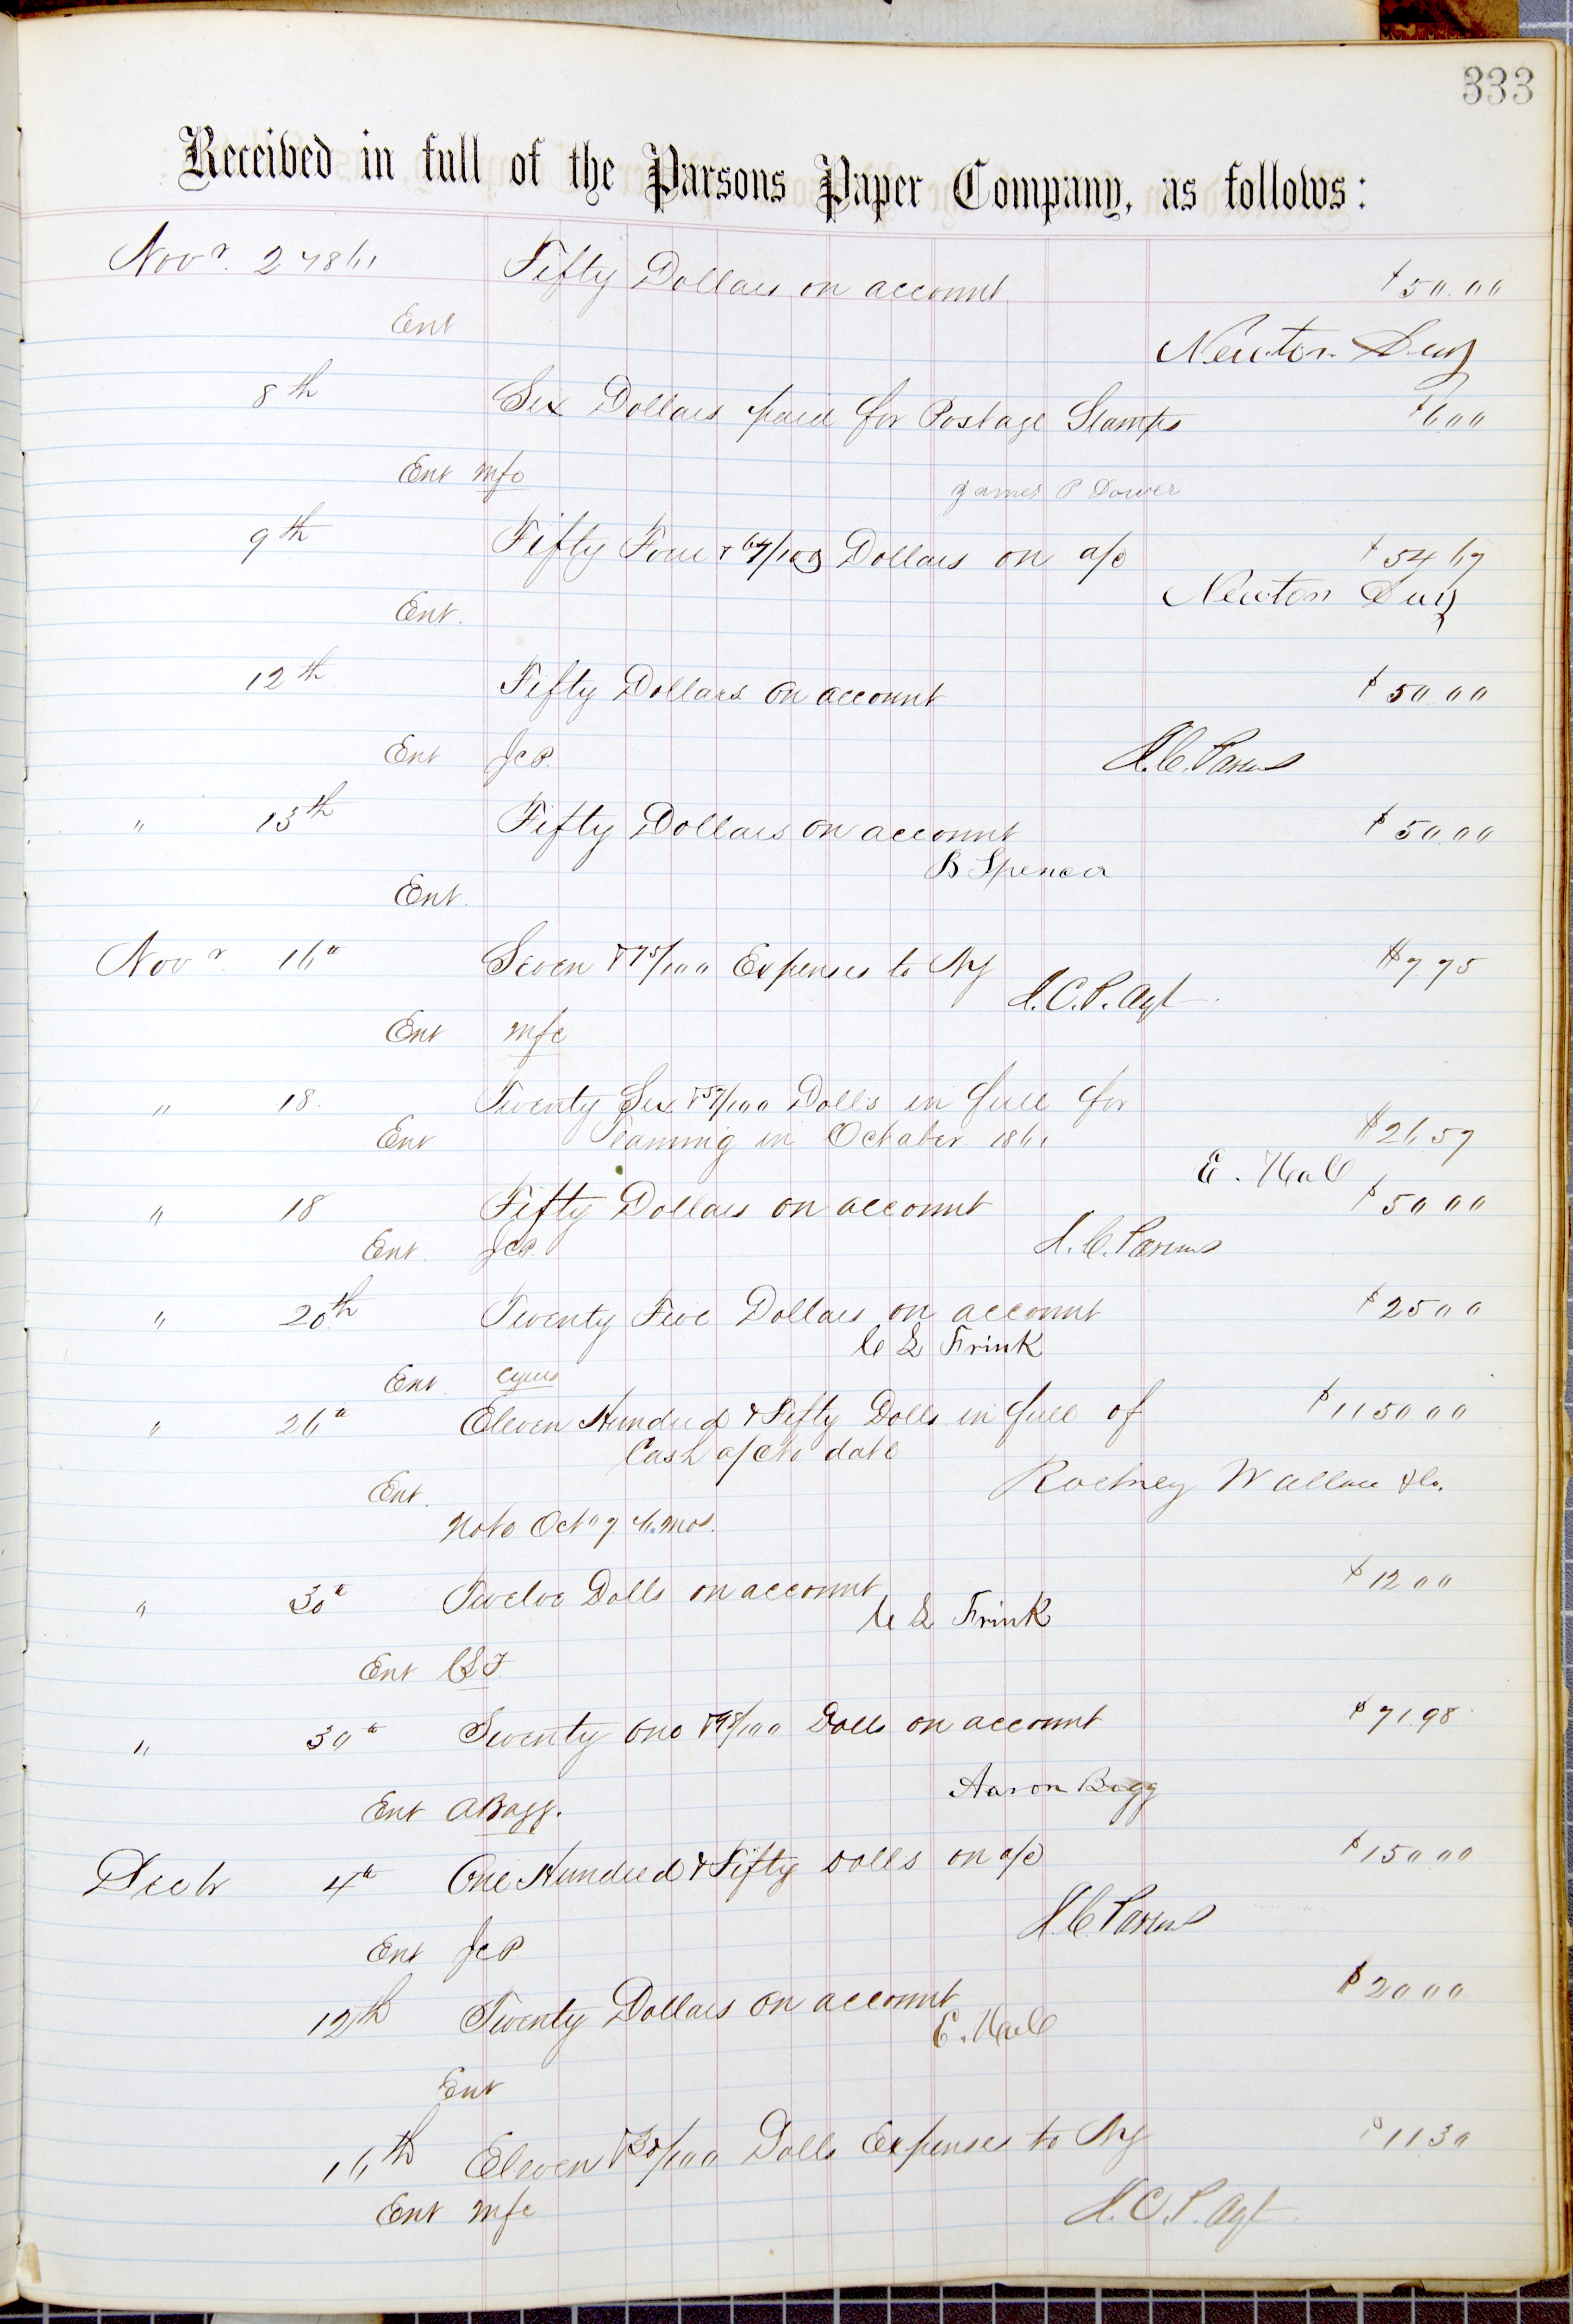 333
Received in full of the Parsons Paper Company, as follows:
Novr. 2 1861 Fifty Dollars on account $50.00
Ent
Newton Day
8th Six Dollars paid for Postage Stamps $6.00
Ent mfc
James P Dower
9th Fifty Four & 67/100 Dollars on a/c $54 67
Ent. Newton Day
12th Fifty Dollars on account $50.00
Ent JCP. J.C. Parsons
" 13th Fifty Dollars on account $50.00
B Spencer
Ent.
Novr. 16th Seven & 75/100 Expenses to NY $7.75
J.C.P. Agt
Ent mfc
" 18. Twenty Six & 57/100 Dolls in full for
Ent Teaming in October 1861 $26.57
E. Hall
" 18 Fifty Dollars on account $50 00
Ent. JCP. J.C. Parsons
" 20th Twenty Five Dollars on account $25 00
C L Frink
Ent. Cyrus
" 26th Eleven Hundred & Fifty Dolls in full of $1150.00
Cash a/c to date
Rodney Wallace & Co.
Ent.
Note Oct 7 6 mos.
" 30th Twelve Dolls on account $12 00
C L Frink
Ent CLF
" 30th Seventy One & 98/100 Dolls on account $71.98
Aaron Bagg
Ent A Bagg.
Decbr 4th One Hundred & Fifty Dolls on a/c $150.00
J.C. Parsons
Ent JCP
12th Twenty Dollars on account $20 00
E. Hall
Ent
16th Eleven & 30/100 Dolls Expenses to NY $11 30
Ent mfc J.C.P. Agt.